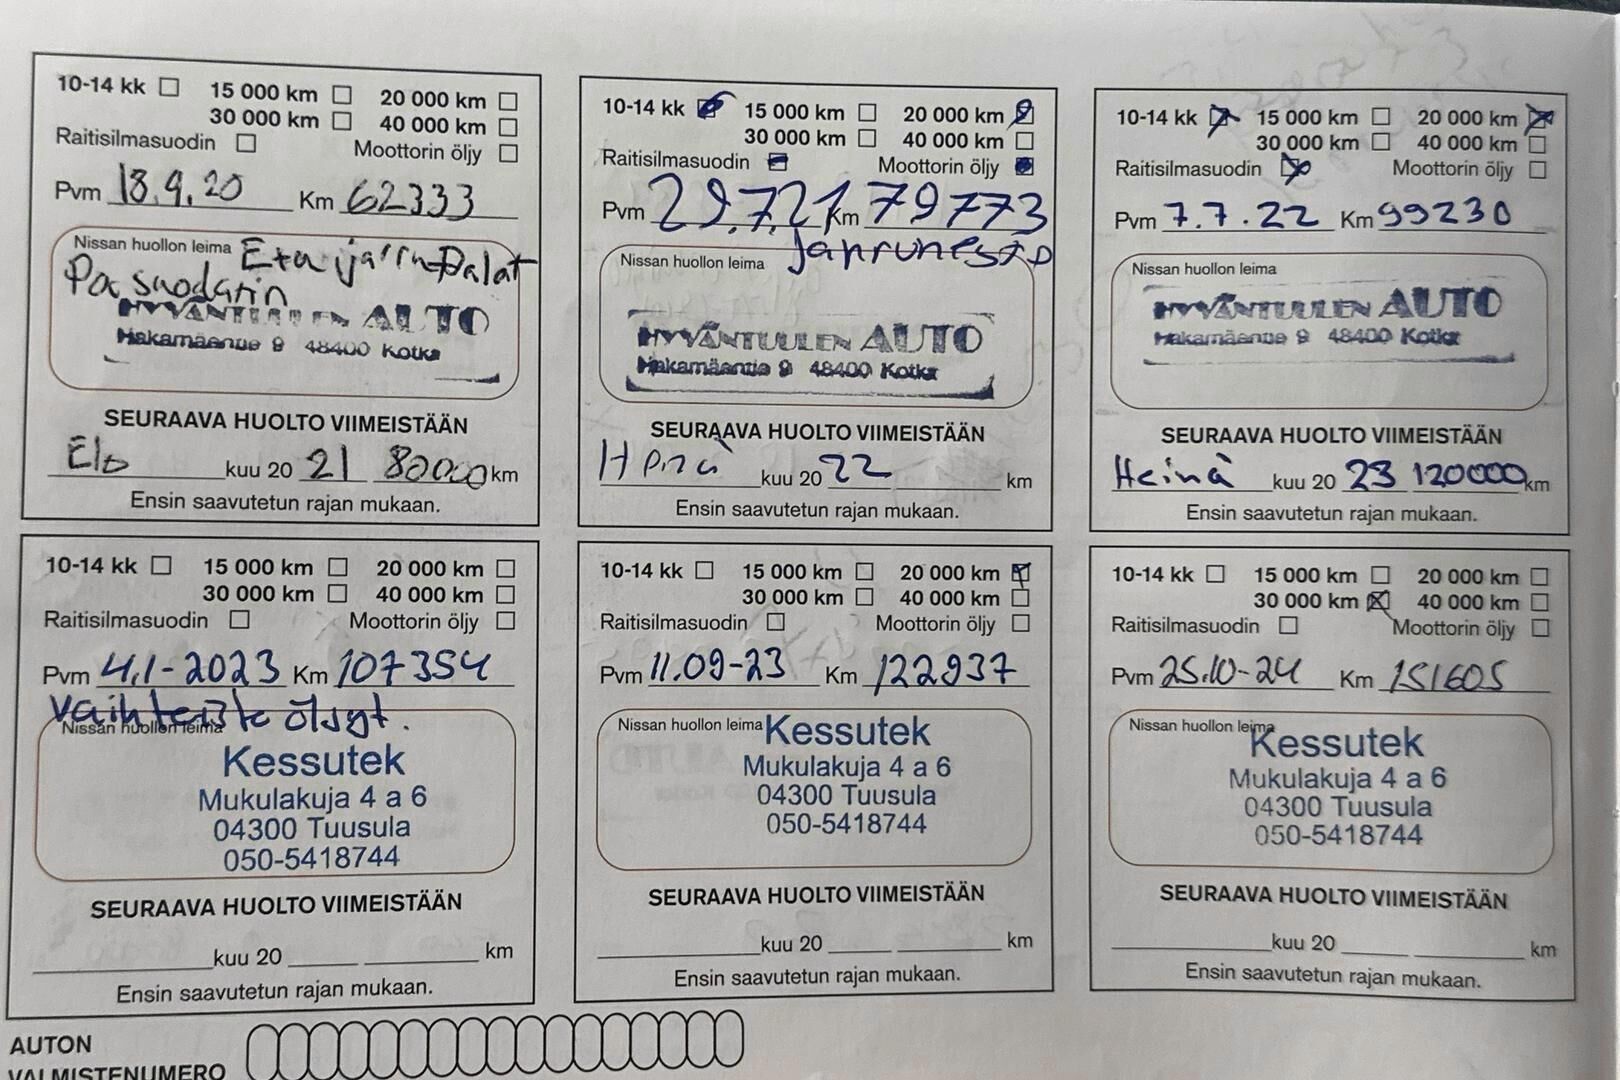 10-14 kk 15 000 km 20 000 km
30 000 km 40 000 km
Raitisilmasuodin Moottorin öljy
Pvm 18.9.20 Km 62333
Nissan huollon leima Etu jarru-Palat
suodatin
HYVÄNTUULEN AUTO
Hakamäentie 9 48400 Kotka
SEURAAVA HUOLTO VIIMEISTÄÄN
Elo kuu 20 21 80000 km
Ensin saavutetun rajan mukaan.
10-14 kk 15 000 km 20 000 km
30 000 km 40 000 km
Raitisilmasuodin Moottorin öljy
Pvm 29.7.21 Km 79773
Jarruneste
Nissan huollon leima
HYVÄNTUULEN AUTO
Hakamäentie 9 48400 Kotka
SEURAAVA HUOLTO VIIMEISTÄÄN
Heinä kuu 20 22 km
Ensin saavutetun rajan mukaan.
10-14 kk 15 000 km 20 000 km
30 000 km 40 000 km
Raitisilmasuodin Moottorin öljy
Pvm 7.7.22 Km 99230
Nissan huollon leima
HYVÄNTUULEN AUTO
Hakamäentie 9 48400 Kotka
SEURAAVA HUOLTO VIIMEISTÄÄN
Heinä kuu 20 23 120000 km
Ensin saavutetun rajan mukaan.
10-14 kk 15 000 km 20 000 km
30 000 km 40 000 km
Raitisilmasuodin Moottorin öljy
Pvm 4.1-2023 Km 107354
Vaihteisto öljyt.
Nissan huollon leima
Kessutek
Mukulakuja 4 a 6
04300 Tuusula
050-5418744
SEURAAVA HUOLTO VIIMEISTÄÄN
kuu 20 km
Ensin saavutetun rajan mukaan.
10-14 kk 15 000 km 20 000 km
30 000 km 40 000 km
Raitisilmasuodin Moottorin öljy
Pvm 11.09-23 Km 122937
Nissan huollon leima
Kessutek
Mukulakuja 4 a 6
04300 Tuusula
050-5418744
SEURAAVA HUOLTO VIIMEISTÄÄN
kuu 20 km
Ensin saavutetun rajan mukaan.
10-14 kk 15 000 km 20 000 km
30 000 km 40 000 km
Raitisilmasuodin Moottorin öljy
Pvm 25.10-24 Km 151605
Nissan huollon leima
Kessutek
Mukulakuja 4 a 6
04300 Tuusula
050-5418744
SEURAAVA HUOLTO VIIMEISTÄÄN
kuu 20 km
Ensin saavutetun rajan mukaan.
AUTON
VALMISTENUMERO